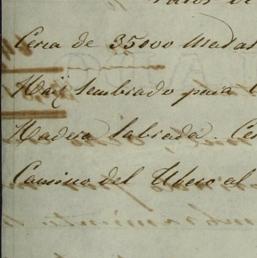 de
Cerca de 35000 Matas
Haÿ Sembrado para
Madera labrada. Ce
Camino del Ubero al